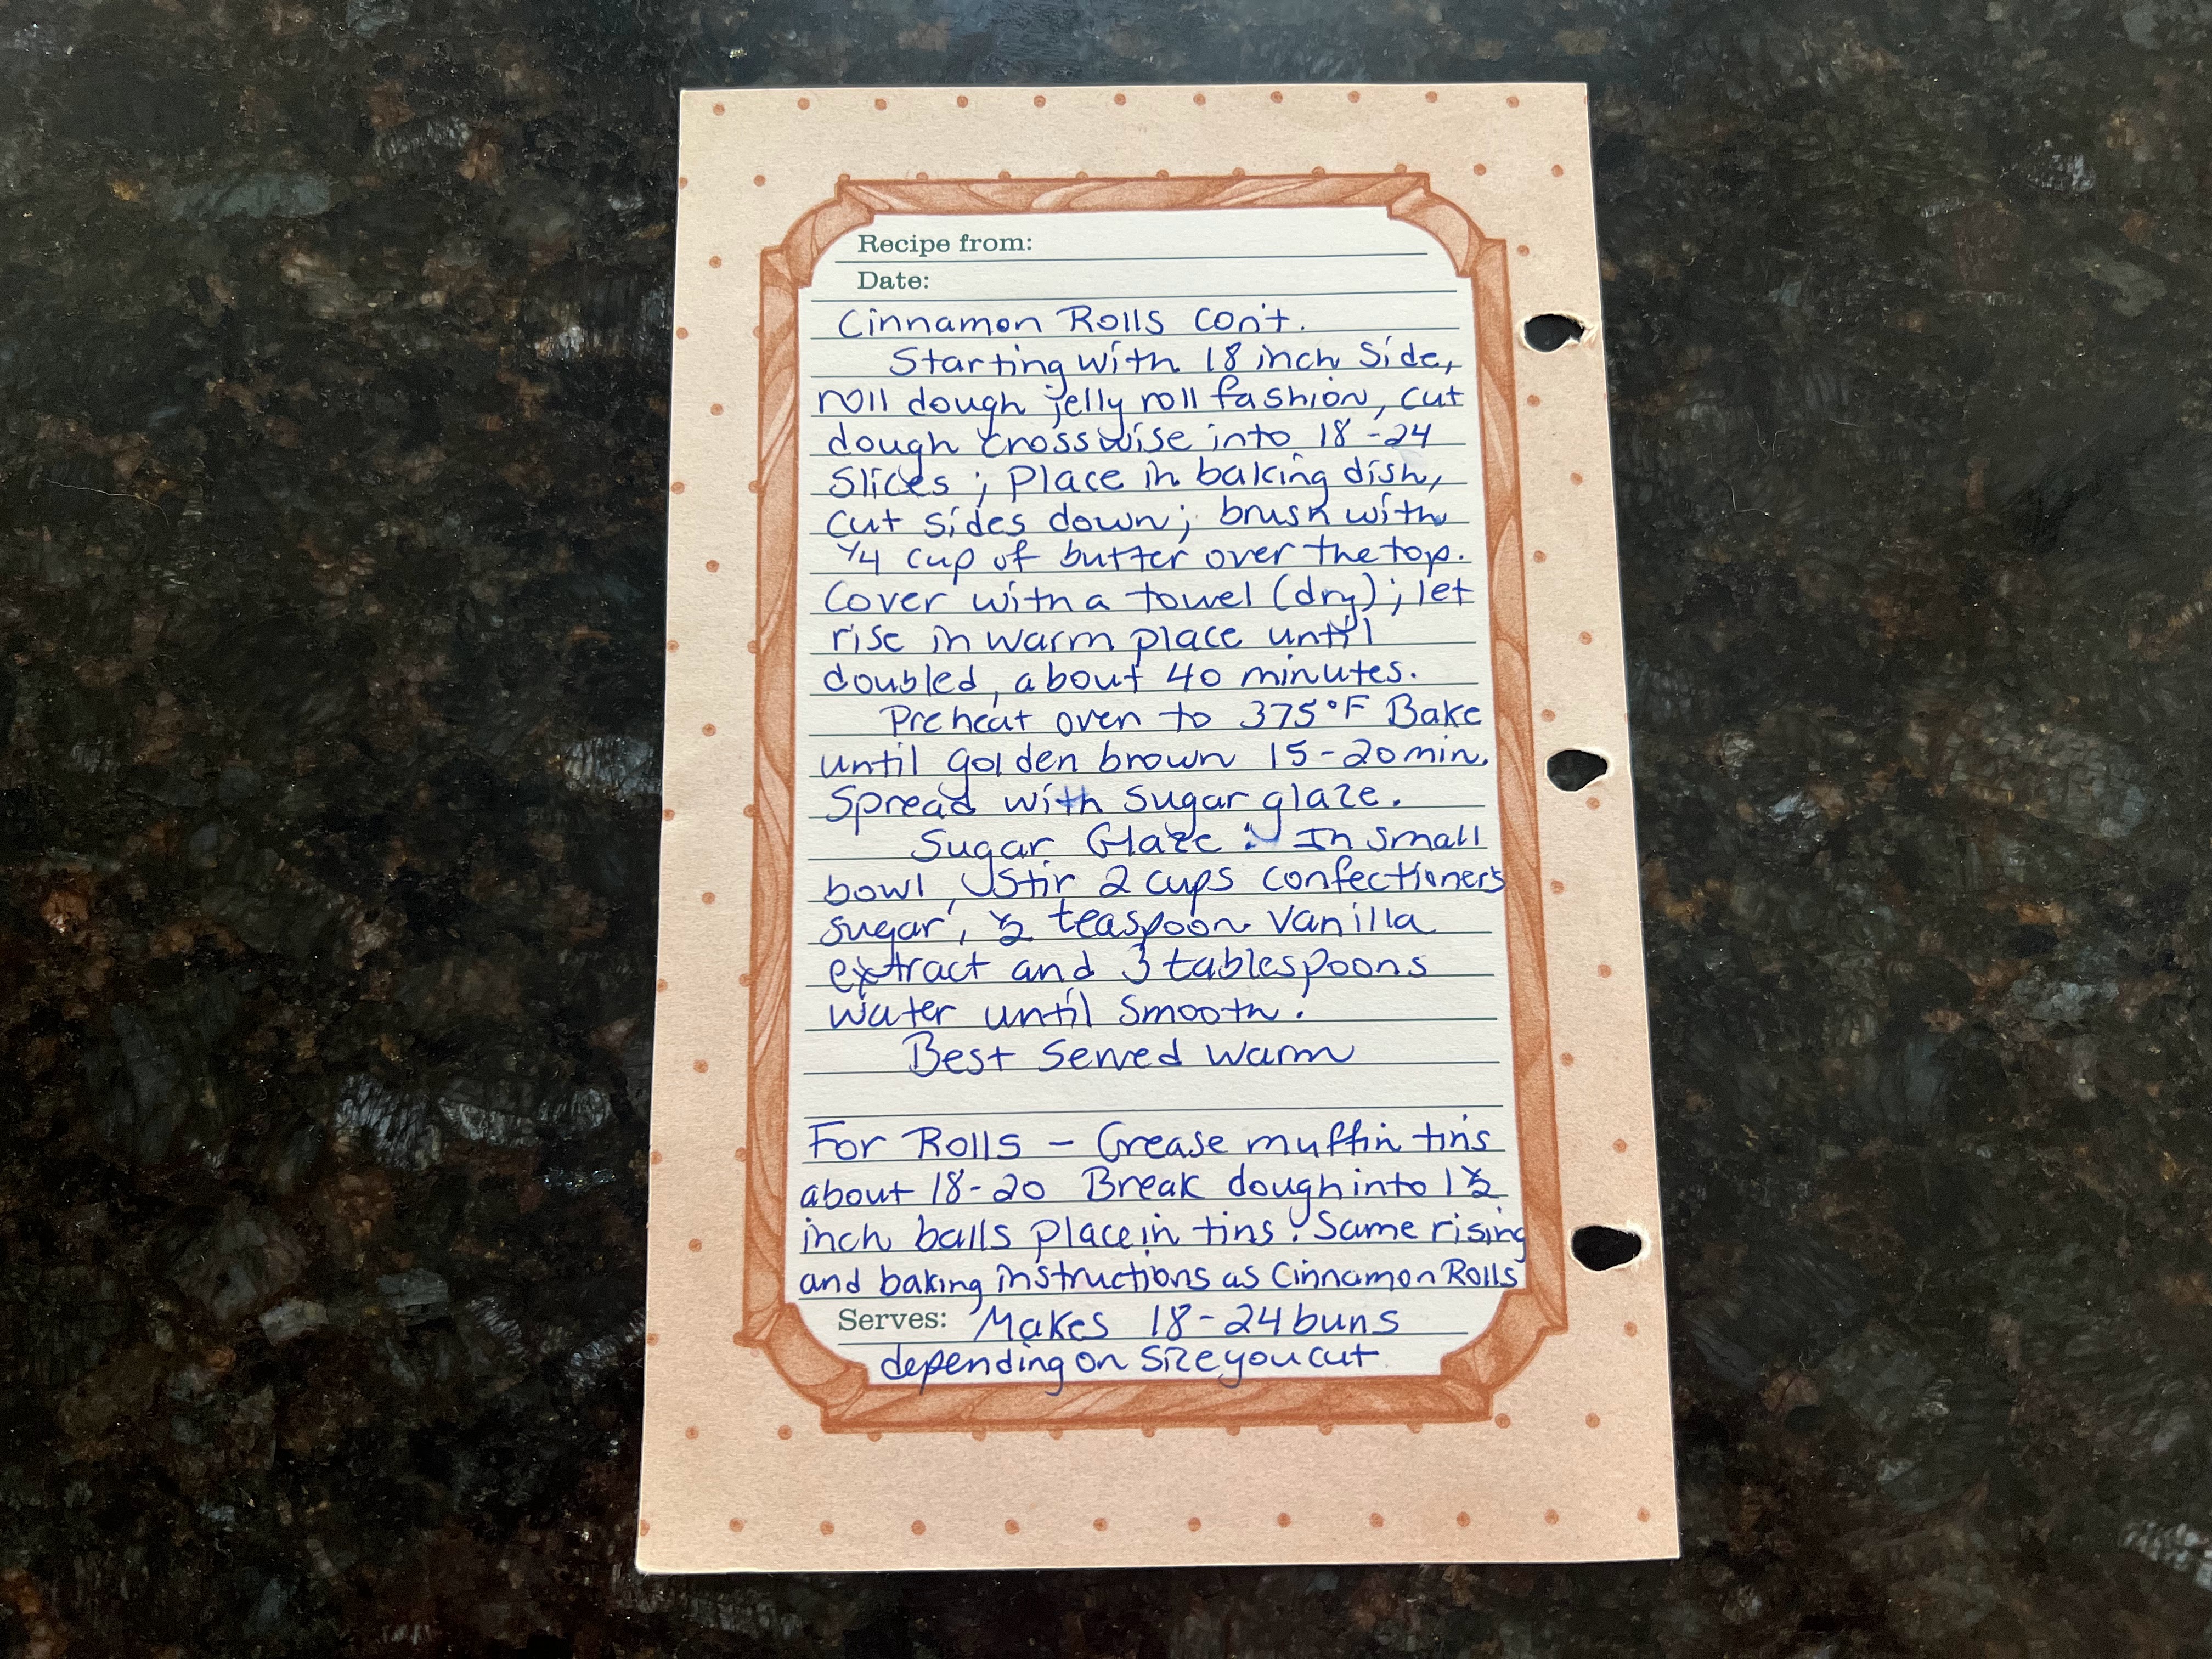 Recipe from:
Date:
Cinnamon Rolls con't.
Starting with 18 inch side,
roll dough jelly roll fashion, cut
dough crosswise into 18-24
slices; Place in baking dish,
cut sides down; brush with
1/4 cup of butter over the top.
Cover with a towel (dry); let
rise in warm place until
doubled, about 40 minutes.
Preheat oven to 375°F Bake
until golden brown 15-20 min.
Spread with sugar glaze.
Sugar Glaze: In small
bowl, stir 2 cups confectioners
sugar, 1/2 teaspoon vanilla
extract and 3 tablespoons
water until smooth.
Best Served warm
For Rolls - Grease muffin tins
about 18-20 Break dough into 1 1/2
inch balls place in tins. Same rising
and baking instructions as Cinnamon Rolls
Serves: Makes 18-24 buns
depending on size you cut